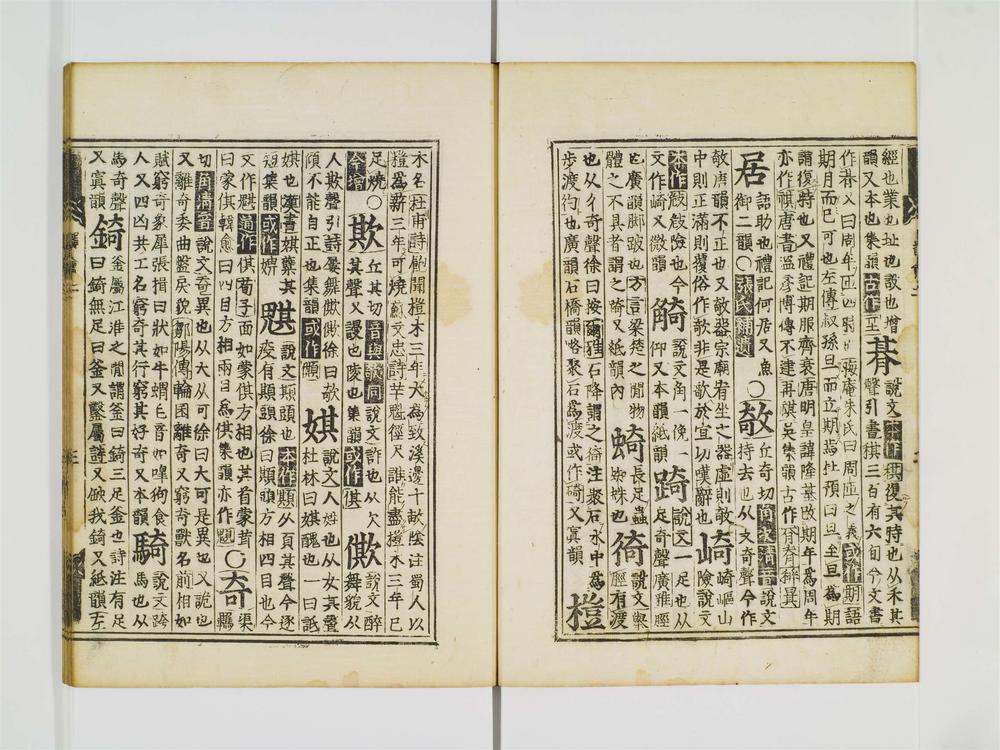 經也業也址也設也增
韻又本也集韻古作至
朞
說文本作稘復其時也从禾其
聲引書稘三百有六旬今文書
作朞又曰周年匝四時晦庵朱氏曰周匝之義或作期語
期月而已可也左傳叔孫旦而立期焉杜預曰旦至旦為期
謂復時也又禮記期服齊衰唐明皇諱隆基故期年為周年
亦作祺唐書溫彥博傳不逮再祺矣集韻古作辨異
居
語助也禮記何居又魚
御二韻○張氏補遺
○攲
丘奇切角次清音說文
持去也从攴奇聲今作
攲唐韻不正也又攲器宗廟宥坐之器虛則攲
中則正滿則覆俗作歌非是歌於宜切嘆辭也
崎
崎嶇山
險說文
本作攲險也今
文作崎又微韻
觭
說文角一俛一
仰又本韻紙韻
踦
說文一足也从
足奇聲廣雅脛
也廣韻脚跛也方言梁楚之間物
體之不具者謂之踦又紙韻
蜘蛛也
長足蟲
徛
說文舉
脛有渡
也从彳奇聲徐曰按爾雅石降謂之徛注聚石水中為
步渡彴也廣韻石橋韻略聚石為渡或作碕又寘韻
榿
木名杜甫詩飽聞榿木三年大為致溪邊十畝陰注蜀人以
榿為薪三年可燒蘇文忠詩芋魁徑尺誰能盡榿木三年已
足燒○
今增
欺
丘其切音與攲同說文詐也从欠
其聲又謾也陵也集韻或作倛
僛
說文醉
舞貌从
人欺聲引詩屢舞僛僛徐曰欹
傾不能自正也集韻或作䫏
娸
說文人姓也从女其聲
杜林曰娸醜也一曰詆
娸也漢書娸櫱其
短集韻或作娸
魌
說文䫏頭也本作䫏从頁其聲今逐
疫有䫏頭徐曰䫏頭方相四目也今
文作魌通作倛荀子面如蒙倛方相也其首蒙茸
曰蒙倛韓愈曰四目方相兩目為倛集韻亦作
○奇
渠
羈
切角濁音說文奇異也从大从可徐曰大可是異也又詭也
又離奇委曲盤戾貌鄒陽傳輪囷離奇又窮奇獸名前相如
賦窮奇象犀張揖曰狀如牛蝟毛音如嘷狗食
人又四凶共工名窮奇其行窮其好奇又本韻
騎
說文跨
馬也从
馬奇聲
又寘韻
錡
釜屬江淮之間謂釜曰錡三足釜也詩注有足
曰錡無足曰釜又鑿屬詩又缺我錡又紙韻